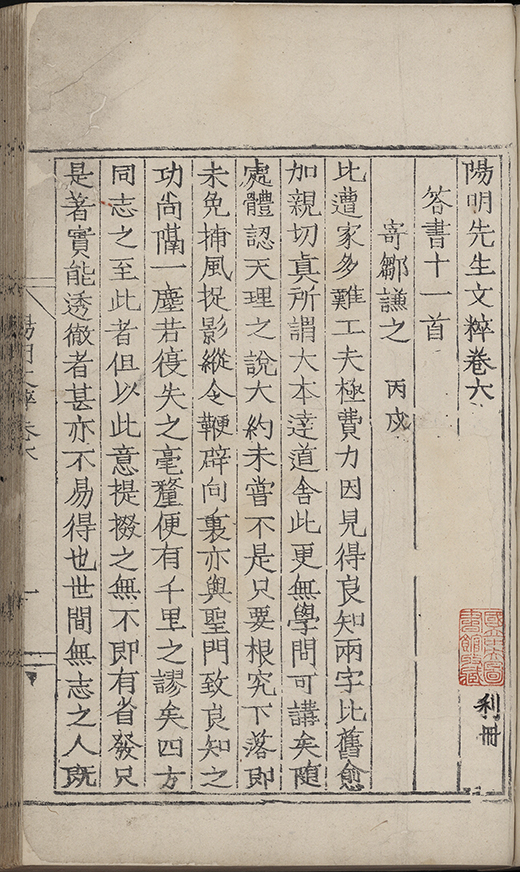 陽明先生文粹卷六
答書十一首
寄鄒謙之 丙戌
比遭家多難工夫極費力因見得良知兩字比舊愈
加親切真所謂大本達道舍此更無學問可講矣隨
處體認天理之說大約未嘗不是只要根究下落即
未免捕風捉影縱令鞭辟向裏亦與聖門致良知之
功尚隔一塵若復失之毫釐便有千里之謬矣四方
同志之至此者但以此意提掇之無不即有省發只
是著實能透徹者甚亦不易得也世間無志之人既
利冊
國立中央圖書館收藏